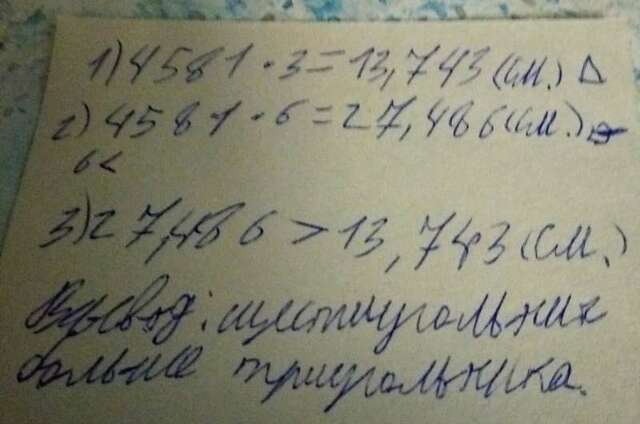 1) 4581 · 3 = 13,743 (см.) △
2) 4581 · 6 = 27,486 (см.)
6<
3) 27,486 > 13,743 (см.)
Вывод: шестиугольник
больше треугольника.